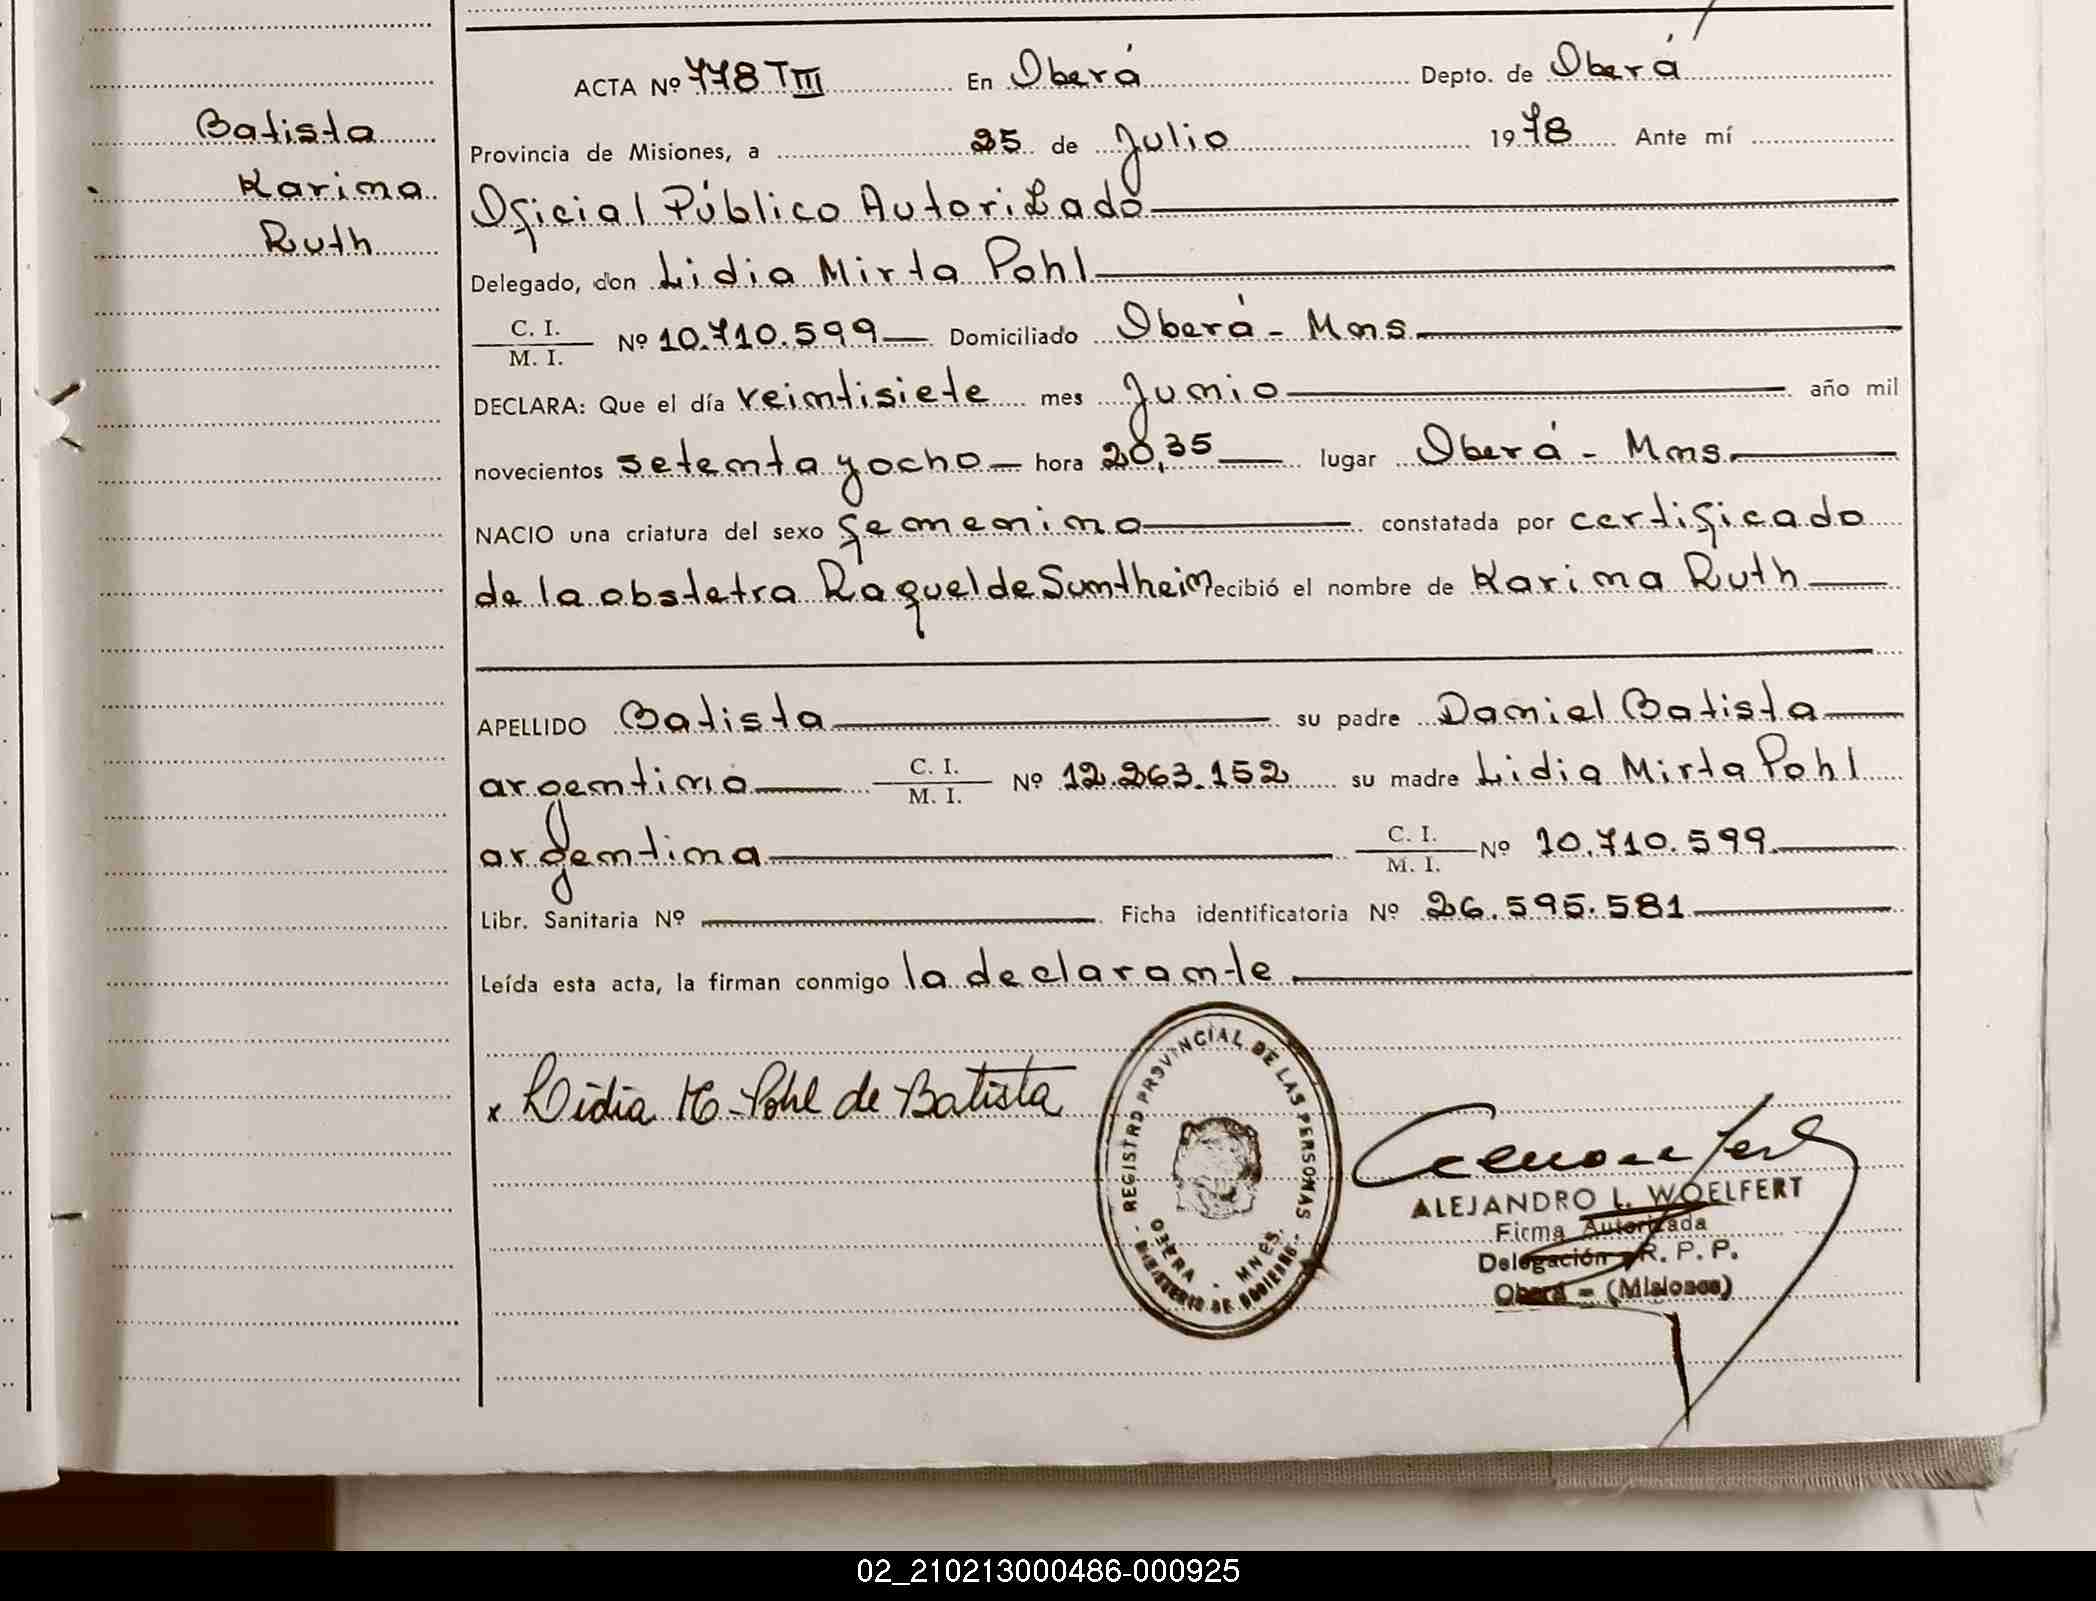 Batista
Karina
Ruth
ACTA Nº 778 TIII En Oberá Depto. de Oberá
Provincia de Misiones, a 25 de Julio 1978 Ante mí
Oficial Público Autorizado
Delegado, don Lidia Mirta Pohl
C. I.
M. I.
Nº 10.710.599 Domiciliado Oberá - Mns.
DECLARA: Que el día veintisiete mes Junio año mil
novecientos setenta y ocho hora 20,35 lugar Oberá - Mns.
NACIO una criatura del sexo femenino constatada por certificado
de la obstetra Raquel de Suntheim recibió el nombre de Karina Ruth
APELLIDO Batista su padre Daniel Batista
argentino C. I. M. I. Nº 12.263.152 su madre Lidia Mirta Pohl
argentina C. I. M. I. Nº 10.710.599
Libr. Sanitaria Nº Ficha identificatoria Nº 26.595.581
Leída esta acta, la firman conmigo la declarante
x Lidia M. Pohl de Batista
REGISTRO PROVINCIAL DE LAS PERSONAS
OBERA - MNES.
MINISTERIO DE GOBIERNO
ALEJANDRO L. WOELFERT
Firma Autorizada
Delegación R. P. P.
Oberá - (Misiones)
02_210213000486-000925